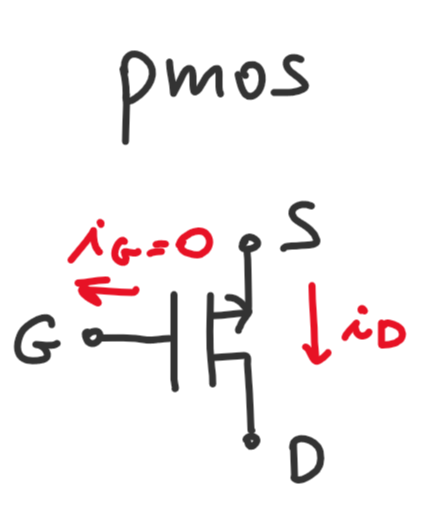 pmos
S
iG=0
G
iD
D